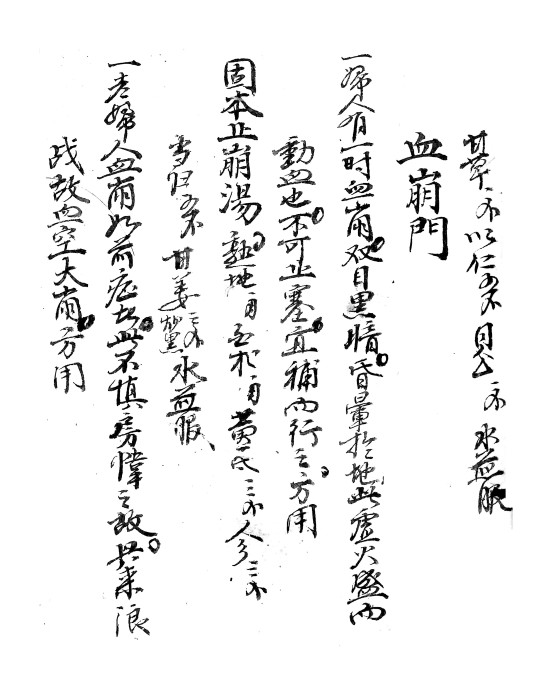 甘草一小 以仁五小 貝母一小 水煎服
血崩門
一婦人有一时血崩双目黑暗昏暈於地此虛火盛而
動血也不可止塞宜補而行之方用
固本止崩湯 熟地一百 白朮一百 黃芪三小 人參三小
當归五小 甘姜炒黑二小 水煎服
一老婦人血崩如前症者此不慎房幃之故其來
战故血空大崩方用